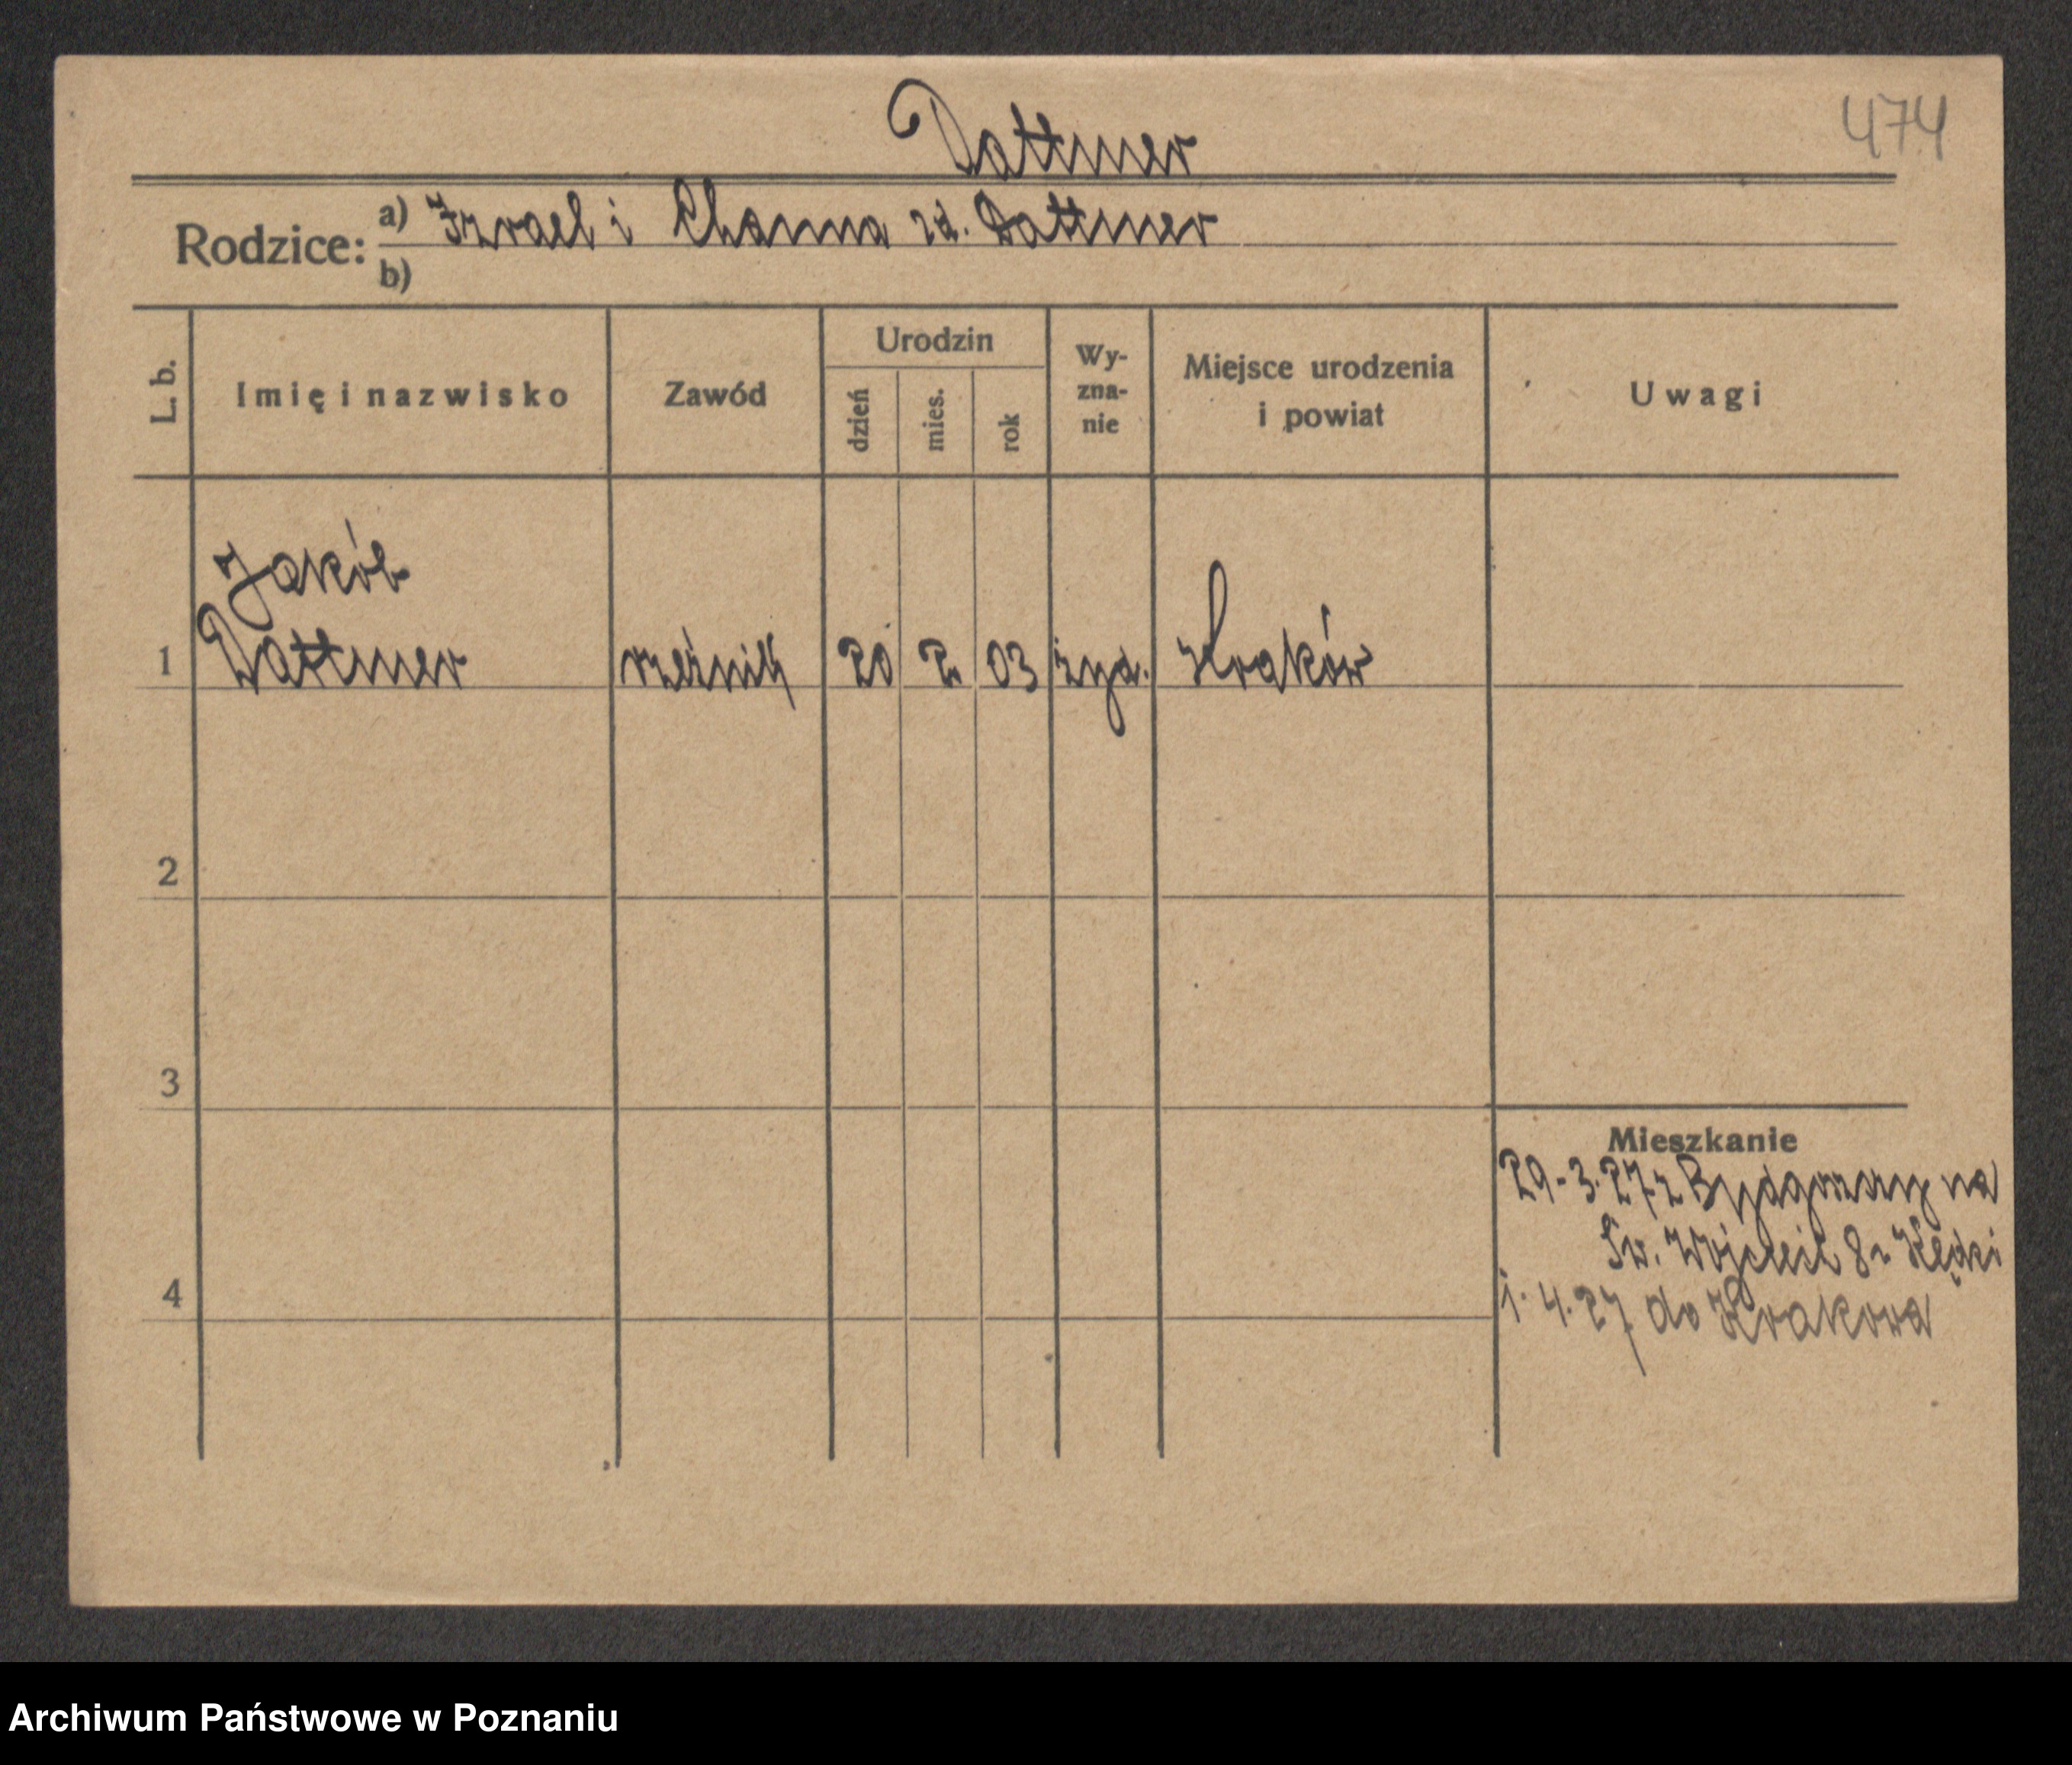 Dattmer
474
Rodzice: a) Izrael i Channa zd. Dattmer
b)
L. b.
Imię i nazwisko
Zawód
Urodzin
dzień
mies.
rok
Wy-
zna-
nie
Miejsce urodzenia
i powiat
Uwagi
Jakób
1 Dattmer rzeźnik 20 2. 03 żyd. Kraków
2
3
4
Mieszkanie
29.3.27 z Bydgoszczy na
Św. Wojciech 8
1.4.27 do Krakowa
Archiwum Państwowe w Poznaniu